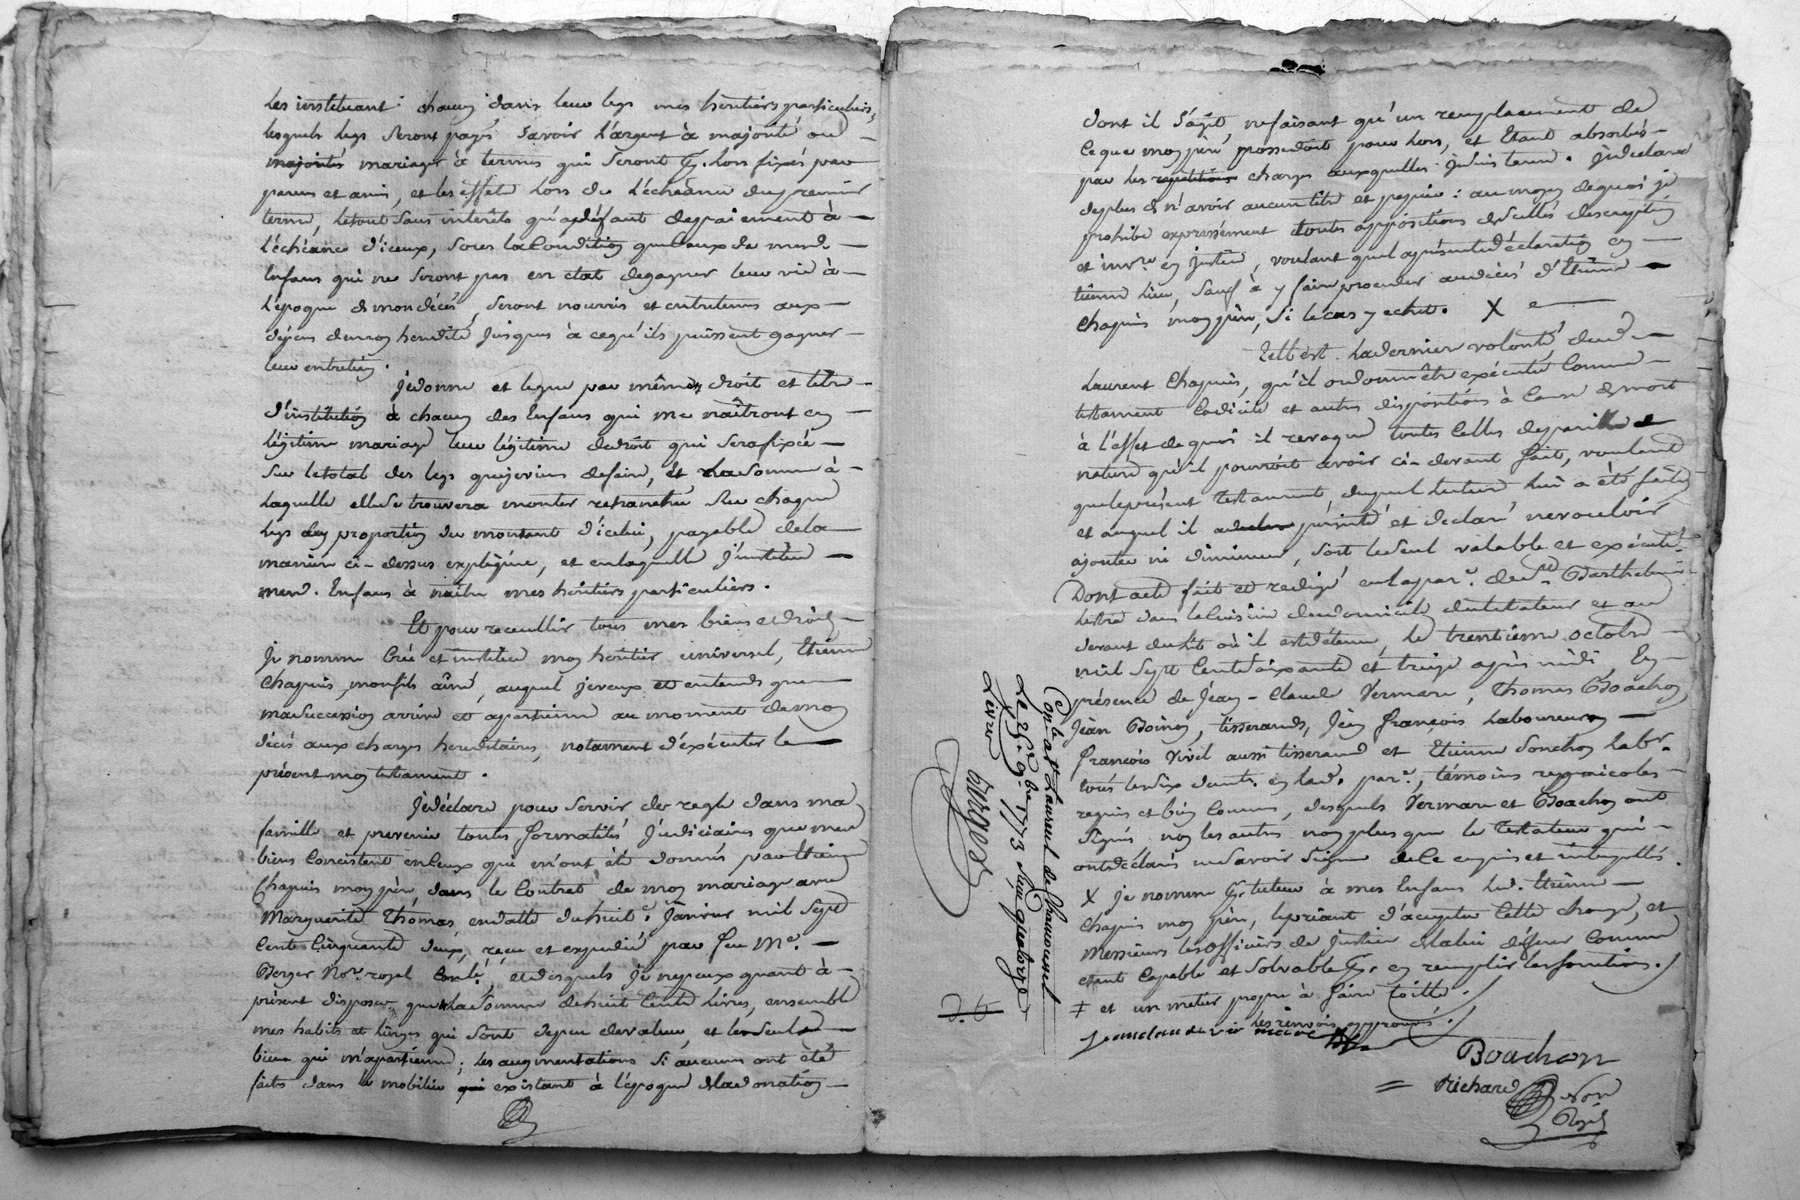 les instituant chacun dans leur legs mes héritiers particuliers,
lesquels legs seront payés savoir l'argent à majorité ou
majorités mariage à termes qui seront p.r lors fixés par
parens et amis, et les effets lors de l'échéance du premier
terme, le tout sans intérêts qu'à défaut de paiement à
l'échéance d'iceux, sous la condition que ceux de mesd.
enfans qui ne seront pas en état de gagner leur vie à
l'époque de mon décés, seront nourris et entretenus aux
dépens de mon heredité jusques à ce qu'ils puissent gagner
leur entretien.
Je donne et legue par mêmes droit et titre
d'institution à chacun des enfans qui me naîtront en
légitime mariage leur légitime de droit qui sera fixée
sur le total des legs que je viens de faire, et la somme à
laquelle elle se trouvera monter retranchée sur chaque
legs en proportion du montant d'icelui, payable de la
maniere ci-dessus expliquée, et en laquelle j'institue
mesd. enfans à naître mes héritiers particuliers.
Et pour recueillir tous mes biens et droits
je nomme crée et institue mon héritier universel, Etienne
Chapuis mon fils aîné, auquel je veux et entends que
ma succession arrive et apartienne au moment de mon
décés aux charges hereditaires, notament d'exécuter le
présent mon testament.
Je déclare pour servir de regle dans ma
famille et prevenir toutes formalités judiciaires que mes
biens consistent en ceux qui m'ont été donnés par Etienne
Chapuis mon père dans le contrat de mon mariage avec
Marguerite Thomas, en datte du huit Janvier mil sept
cents cinquante deux, reçu et expedié par feu Me.
Berger No.re royal, et desquels je ne peux quant à
présent disposer que de la somme de huit cents livres, ensemble
mes habits et linges qui sont de peu de valeur, et les seuls
biens qui m'apartienne; les augmentations si aucunes ont été
faites dans le mobilier qui existant à l'époque de la donation
dont il s'agit, ne faisant qu'un remplacement de
ce que mon père possedoit pour lors, et étant absorbés
par les repetitions charges auxquelles je suis tenu. Je déclare
de plus de n'avoir aucun titre et papier: au moyen de quoi je
prohibe expressément toutes appositions de scellés description
et inv.re en justice, voulant que la présente déclaration en
tienne lieu, sauf à y faire proceder au décés d'Etienne
Chapuis mon père, si le cas y echet. X
Telle est la derniere volonté dud.
Laurent Chapuis, qu'il ordonne être exécutée comme
testament codicile et autres dispositions à cause de mort
à l'effet de quoi il revoque toutes celles de pareille
nature qu'il pourroit avoir ci-devant fait, voulant
que le présent testament duquel lecture lui a été faite
et auquel il a persisté et declaré ne vouloir
ajouter ni diminuer, soit le seul valable et exécuté.
Dont acte fait et redigé en la par.e de St. Barthelemi
Lestra dans la cuisine du domicile du testateur et au
devant du lit où il est détenu, le trentieme octobre
mil sept cents soixante et treize après midi, en
présence de Jean-Claude Vermare, Thomas Boachon
Jean Boinon, tisserands, Jean François laboureur
François Viriel aussi tisserand et Etienne Sonchon lab.r
tous les six dem.ts en lad. par.e, témoins regnicoles
requis et bien connus, desquels Vermare et Boachon ont
signés non les autres non plus que le testateur qui
ont déclarés ne savoir signer de ce enquis et interpellés.
X je nomme p.r tuteur à mes enfans led. Etienne
Chapuis mon père, le priant d'accepter cette charge, et
messieurs les officiers de justice de la lui déferer comme
etant capable et solvable p.r en remplir les fonctions.
‡ et un metier propre à faire toille.
les renvois approuvés.
Jean claude vermare
Bouchon
Richard
Nore
Royal
Con.lé a St Laurent de Chamousset
Le 25e. 9bre 1773 reçu quatorze
Livres